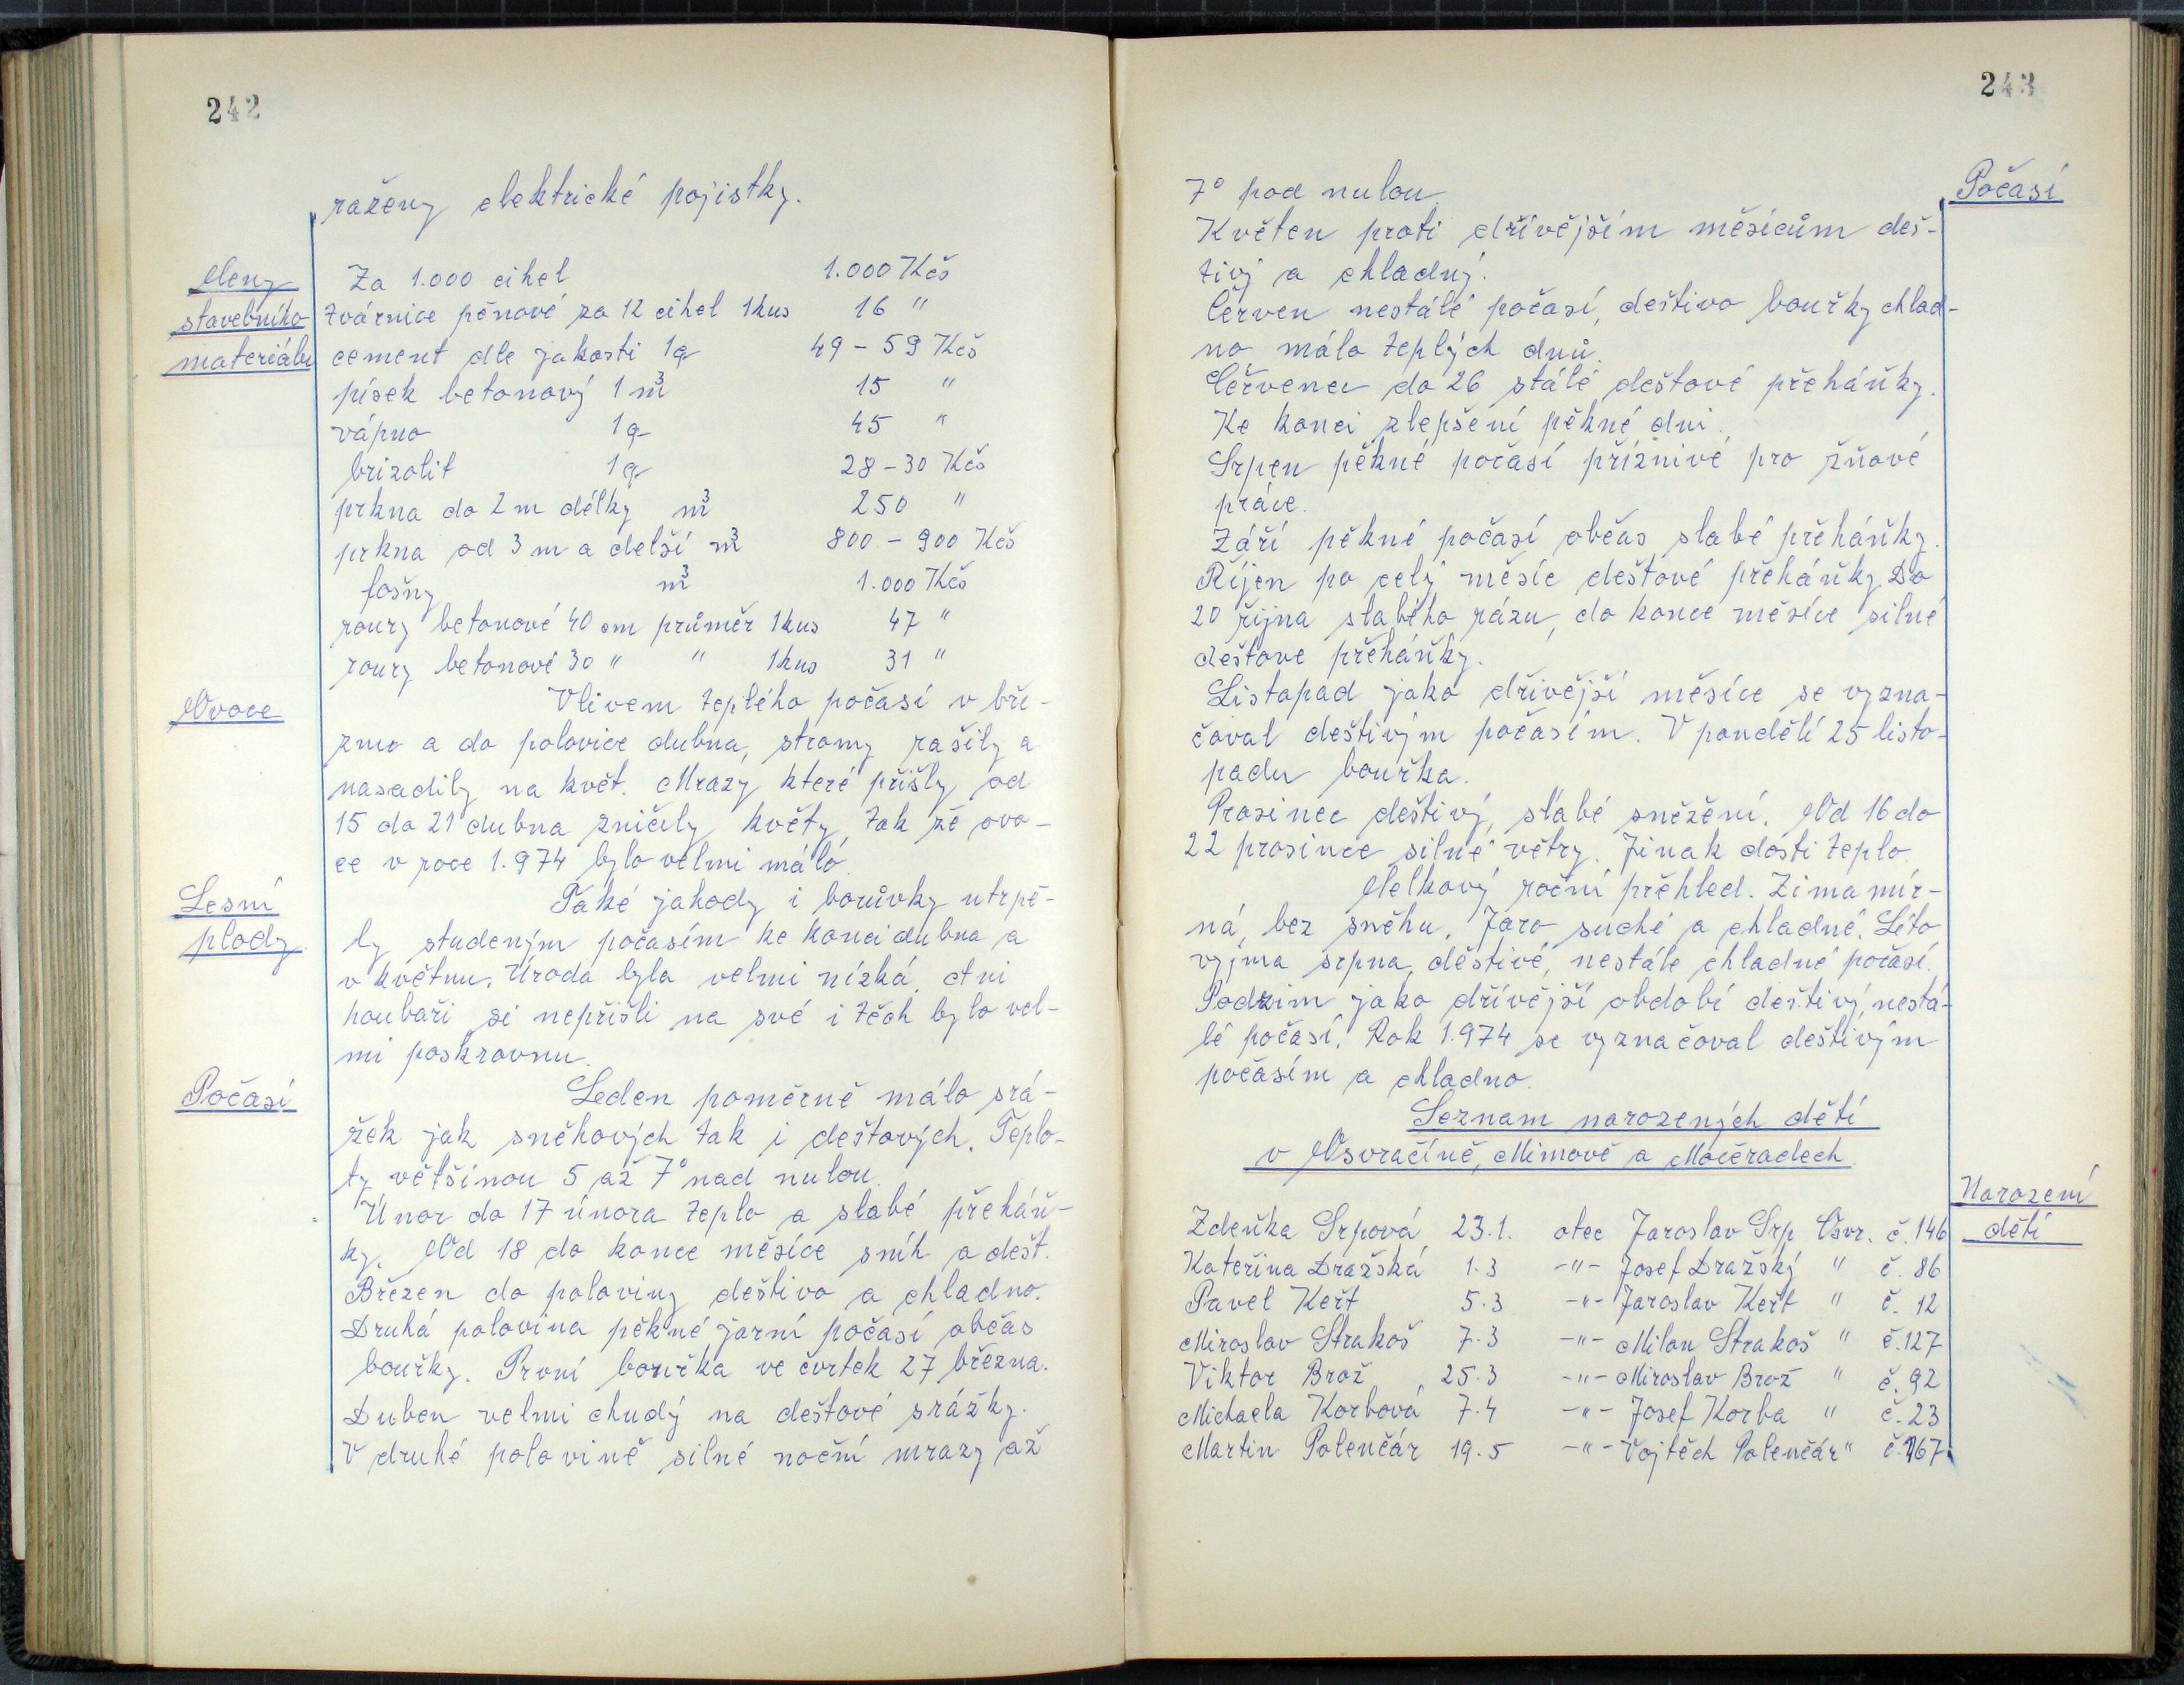 242
raženy elektrické pojistky.
Ceny
stavebního
materiálu
Za 1.000 cihel 1.000 Kčs
tvárnice pěnové za 12 cihel 1kus 16 "
cement dle jakosti 1q 49 - 59 Kčs
písek betonový 1 m³ 15 "
vápno 1q 45 "
brizolit 1q 28 - 30 Kčs
prkna do 2 m délky m³ 250 "
prkna od 3 m a delší m³ 800 - 900 Kčs
fošny m³ 1.000 Kčs
roury betonové 40 cm průměr 1kus 47 "
roury betonové 30 " " 1kus 31 "
Ovoce
Vlivem teplého počasí v bře-
znu a do polovice dubna, stromy rašily a
nasadily na květ. Mrazy které přišly od
15 do 21 dubna zničily květy, tak že ovo-
ce v roce 1.974 bylo velmi málo.
Lesní
plody.
Také jahody i borůvky utrpě-
ly studeným počasím ke konci dubna a
v květnu. Úroda byla velmi nízká. Ani
houbaři si nepřišli na své i těch bylo vel-
mi poskrovnu.
Počasí
Leden poměrně málo srá-
žek jak sněhových tak i dešťových. Teplo-
ty většinou 5 až 7° nad nulou.
Únor do 17 února teplo a slabé přeháň-
ky. Od 18 do konce měsíce sníh a dešť.
Březen do poloviny deštivo a chladno.
Druhá polovina pěkné jarní počasí občas
bouřky. První bouřka ve čvrtek 27 března.
Duben velmi chudý na dešťové srážky.
V druhé polovině silné noční mrazy až
243
Počasí
7° pod nulou.
Květen proti dřívějším měsícům deš-
tivý a chladný.
Červen nestálé počasí, deštivo bouřky chlad-
no málo teplých dnů.
Červenec do 26 stálé dešťové přeháňky.
Ke konci zlepšení pěkné dni.
Srpen pěkné počasí příznivé pro žňové
práce.
Září pěkné počasí občas slabé přeháňky.
Říjen po celý měsíc dešťové přeháňky. Do
20 října slabého rázu, do konce měsíce silné
dešťove přeháňky.
Listopad jako dřivější měsíce se vyzna-
čoval deštivým počasím. V pondělí 25 listo-
padu bouřka.
Prosinec deštivý, slabé sněžení. Od 16 do
22 prosince silné větry. Jinak dosti teplo.
Celkový roční přehled. Zima mír-
ná, bez sněhu. Jaro suché a chladné. Léto
vyjma srpna, deštivé, nestále chladné počasí.
Podzim jako dřívější období deštivý, nestá-
lé počasí. Rok 1.974 se vyznačoval deštivým
počasím a chladno.
Seznam narozených dětí
v Osvračíně, Mimově a Močeradech.
Narození
děti
Zdeňka Srpová 23.1. otec Jaroslav Srp Osvr. č. 146
Kateřina Dražská 1.3 -"- Josef Dražský " č. 86
Pavel Keřt 5.3 -"- Jaroslav Keřt " č. 12
Miroslav Strakoš 7.3 -"- Milan Strakoš " č. 127
Viktor Brož 25.3 -"- Miroslav Brož " č. 92
Michaela Korbová 7.4 -"- Josef Korba " č. 23
Martin Polenčár 19.5 -"- Vojtěch Polenčár " č. 167